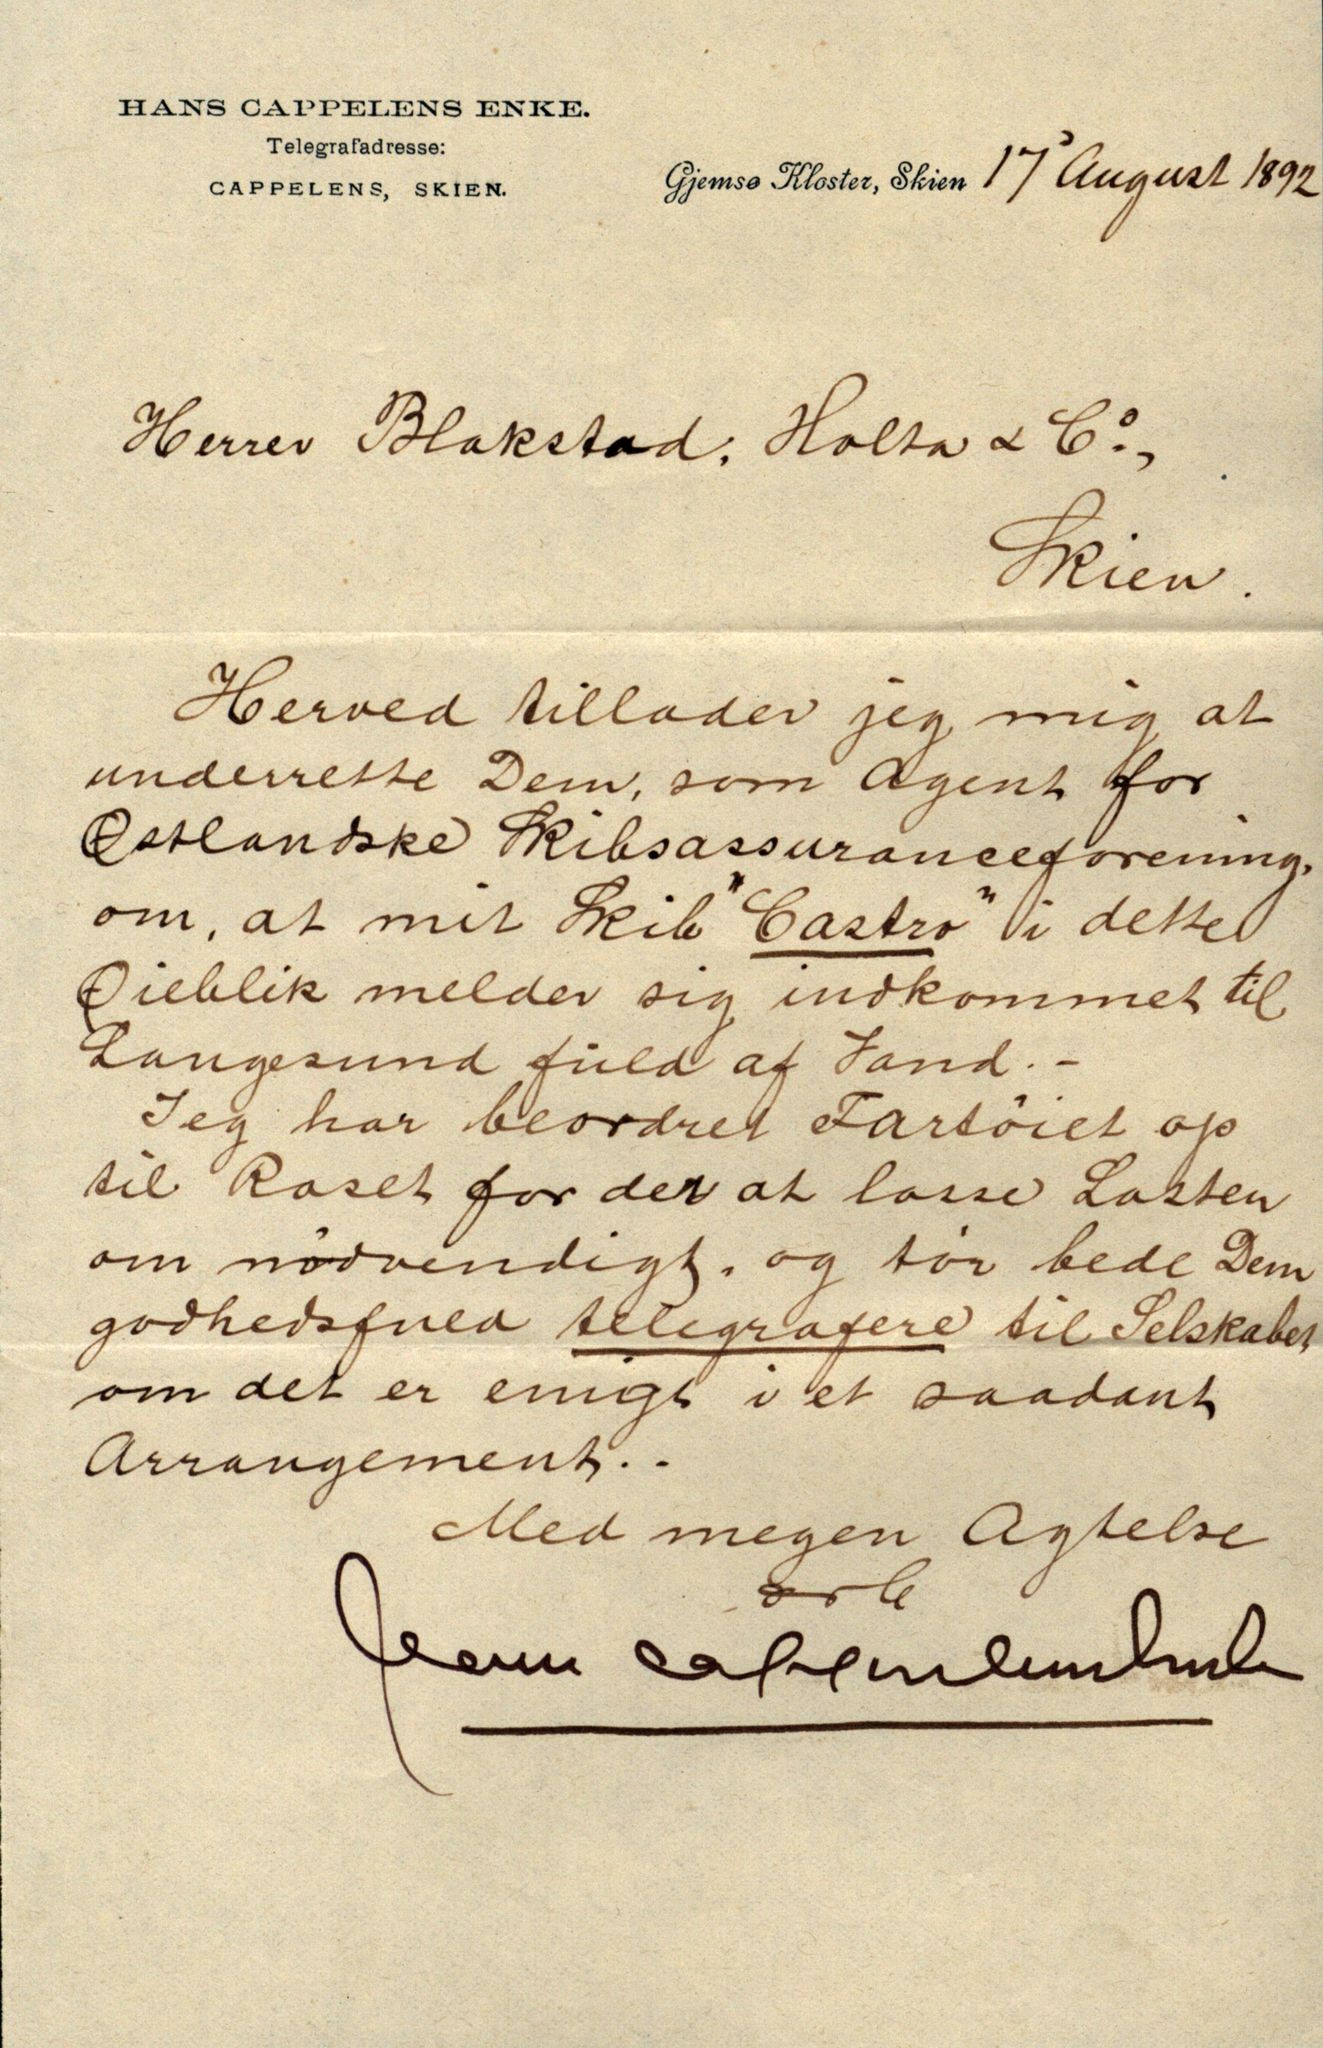 HANS CAPPELENS ENKE.
Telegrafadresse:
CAPPELENS, SKIEN.
Gjemsø Kloster, Skien 17 August 1892
Herrer Blakstad, Holta & Co.,
Skien.
Herved tillader jeg mig at
underrette Dem, som Agent for
Østlandske Skibsassuranceforening,
om, at mit Skib "Castro" i dette
Øieblik melder sig indkommet til
Langesund fuld af Vand.-
Jeg har beordret Fartöiet op
til Raset for der at losse Lasten
om nödvendigt, og tör bede Dem
godhedsfuld telegrafere til Selskabet
om det er enigt i et saadant
Arrangement.-
Med megen Agtelse